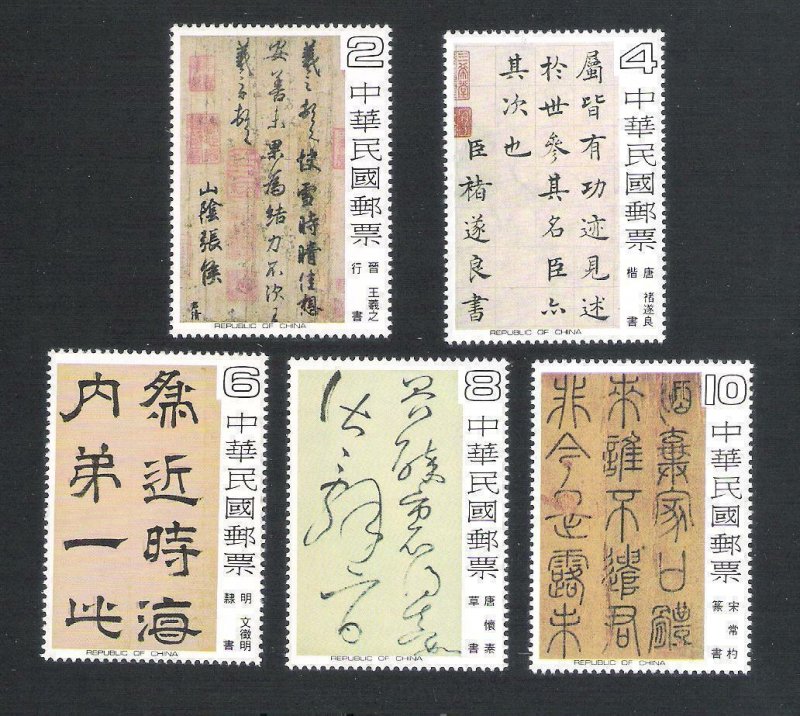 2
中華民國郵票
羲之頓首快雪時晴佳想
安善未果為結力不次王
羲之頓首
山陰張侯
晉 王羲之
行書
REPUBLIC OF CHINA
4
中華民國郵票
屬皆有功迹見述
於世參其名臣亦
其次也
臣褚遂良書
唐 褚遂良
楷書
REPUBLIC OF CHINA
6
中華民國郵票
近時海
內弟一此
明 文徵明
隸書
REPUBLIC OF CHINA
8
中華民國郵票
唐 懷素
草書
REPUBLIC OF CHINA
10
中華民國郵票
酒棄家口體
來誰不遣君
非今是露未
宋 常杓
篆書
REPUBLIC OF CHINA